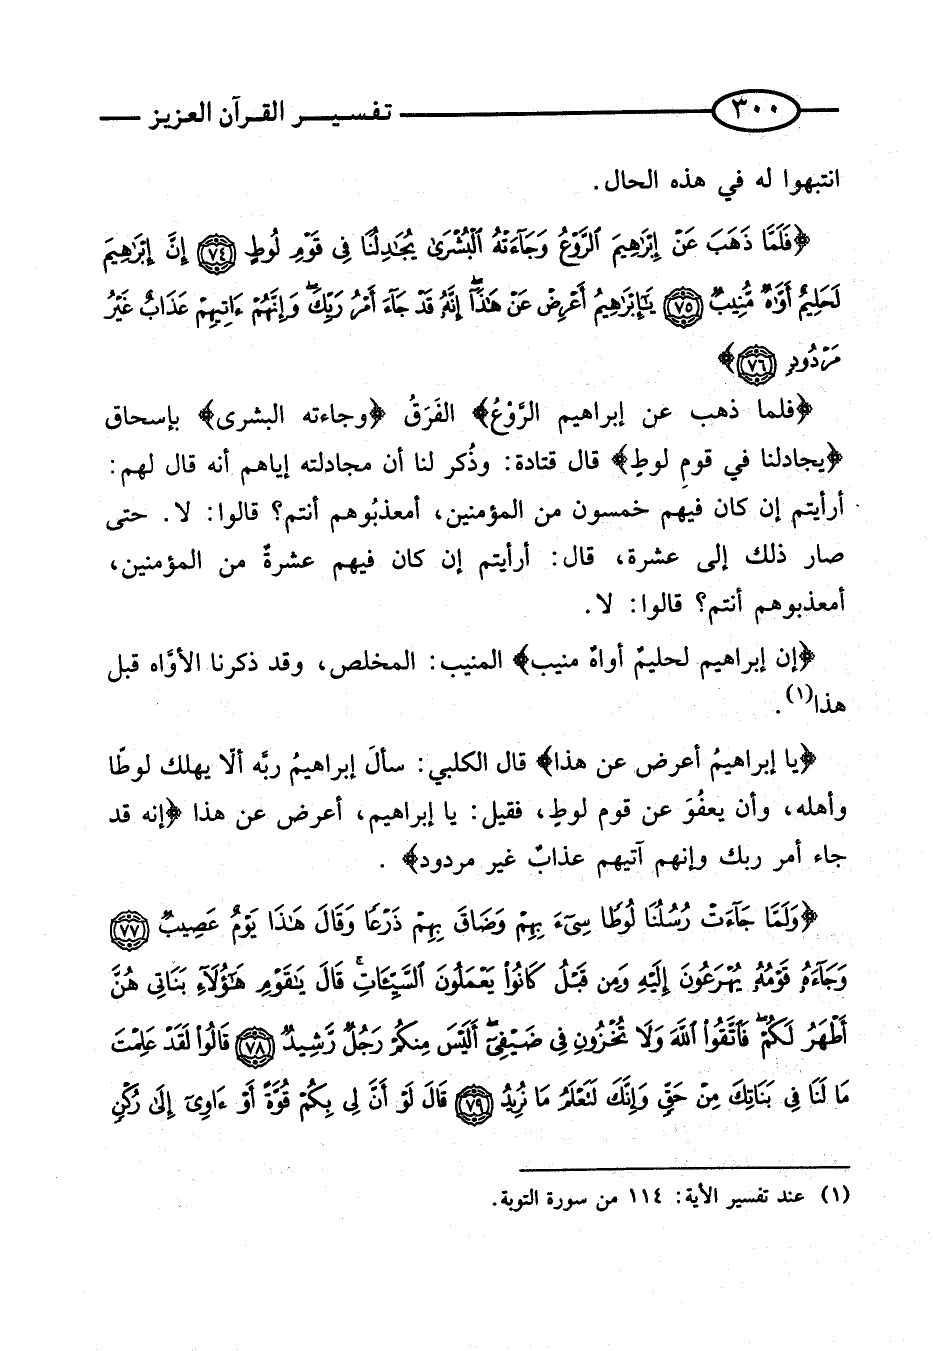 ٣٠٠ تفسير القرآن العزيز
انتبهوا له في هذه الحال.
﴿فَلَمَّا ذَهَبَ عَنْ إِبْرَٰهِيمَ ٱلرَّوْعُ وَجَآءَتْهُ ٱلْبُشْرَىٰ يُجَٰدِلُنَا فِى قَوْمِ لُوطٍ ﴿٧٤﴾ إِنَّ إِبْرَٰهِيمَ
لَحَلِيمٌ أَوَّٰهٌ مُّنِيبٌ ﴿٧٥﴾ يَٰٓإِبْرَٰهِيمُ أَعْرِضْ عَنْ هَٰذَآ ۖ إِنَّهُۥ قَدْ جَآءَ أَمْرُ رَبِّكَ ۖ وَإِنَّهُمْ ءَاتِيهِمْ عَذَابٌ غَيْرُ
مَرْدُودٍ ﴿٧٦﴾﴾
﴿فلما ذهب عن إبراهيم الرَّوْعُ﴾ الفَرَقُ ﴿وجاءته البشرى﴾ بإسحاق
﴿يجادلنا في قومِ لوطٍ﴾ قال قتادة: وذُكر لنا أن مجادلته إياهم أنه قال لهم:
أرأيتم إن كان فيهم خمسون من المؤمنين، أمعذبُوهم أنتم؟ قالوا: لا. حتى
صار ذلك إلى عشرة، قال: أرأيتم إن كان فيهم عشرةٌ من المؤمنين،
أمعذبوهم أنتم؟ قالوا: لا.
﴿إن إبراهيم لحليمٌ أواهٌ منيب﴾ المنيب: المخلص، وقد ذكرنا الأوَّاه قبل
هذا(١).
﴿يا إبراهيمُ أعرض عن هذا﴾ قال الكلبي: سألَ إبراهيمُ ربَّه ألّا يهلك لوطًا
وأهله، وأن يعفُوَ عن قوم لوطٍ، فقيل: يا إبراهيم، أعرض عن هذا ﴿إنه قد
جاء أمر ربك وإنهم آتيهم عذابٌ غير مردود﴾.
﴿وَلَمَّا جَآءَتْ رُسُلُنَا لُوطًا سِىٓءَ بِهِمْ وَضَاقَ بِهِمْ ذَرْعًا وَقَالَ هَٰذَا يَوْمٌ عَصِيبٌ ﴿٧٧﴾
وَجَآءَهُۥ قَوْمُهُۥ يُهْرَعُونَ إِلَيْهِ وَمِن قَبْلُ كَانُوا۟ يَعْمَلُونَ ٱلسَّيِّـَٔاتِ ۚ قَالَ يَٰقَوْمِ هَٰٓؤُلَآءِ بَنَاتِى هُنَّ
أَطْهَرُ لَكُمْ ۖ فَٱتَّقُوا۟ ٱللَّهَ وَلَا تُخْزُونِ فِى ضَيْفِىٓ ۖ أَلَيْسَ مِنكُمْ رَجُلٌ رَّشِيدٌ ﴿٧٨﴾ قَالُوا۟ لَقَدْ عَلِمْتَ
مَا لَنَا فِى بَنَاتِكَ مِنْ حَقٍّ وَإِنَّكَ لَتَعْلَمُ مَا نُرِيدُ ﴿٧٩﴾ قَالَ لَوْ أَنَّ لِى بِكُمْ قُوَّةً أَوْ ءَاوِىٓ إِلَىٰ رُكْنٍ
(١) عند تفسير الأية: ١١٤ من سورة التوبة.